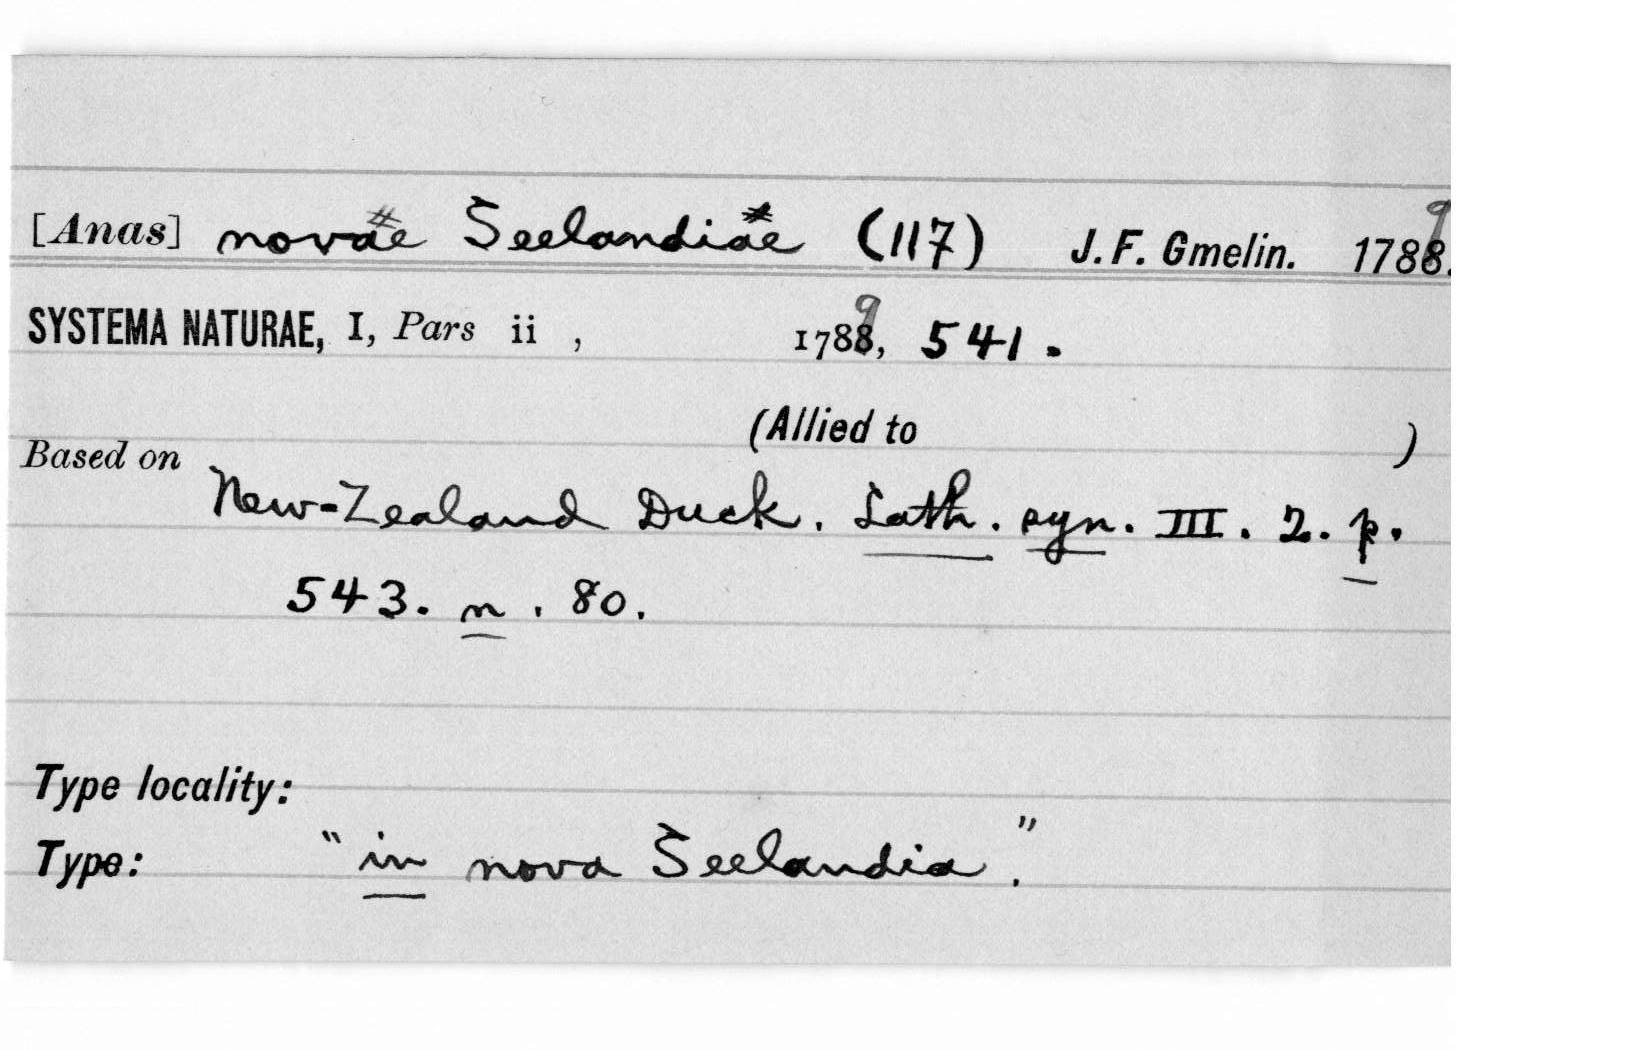 [Anas] novae Seelandiae (117) J. F. Gmelin. 1789.
SYSTEMA NATURAE, I, Pars ii , 1789, 541.
(Allied to )
Based on
New-Zealand Duck. Lath. syn. III. 2. p.
543. n. 80.
Type locality:
Type: "in nova Seelandia."